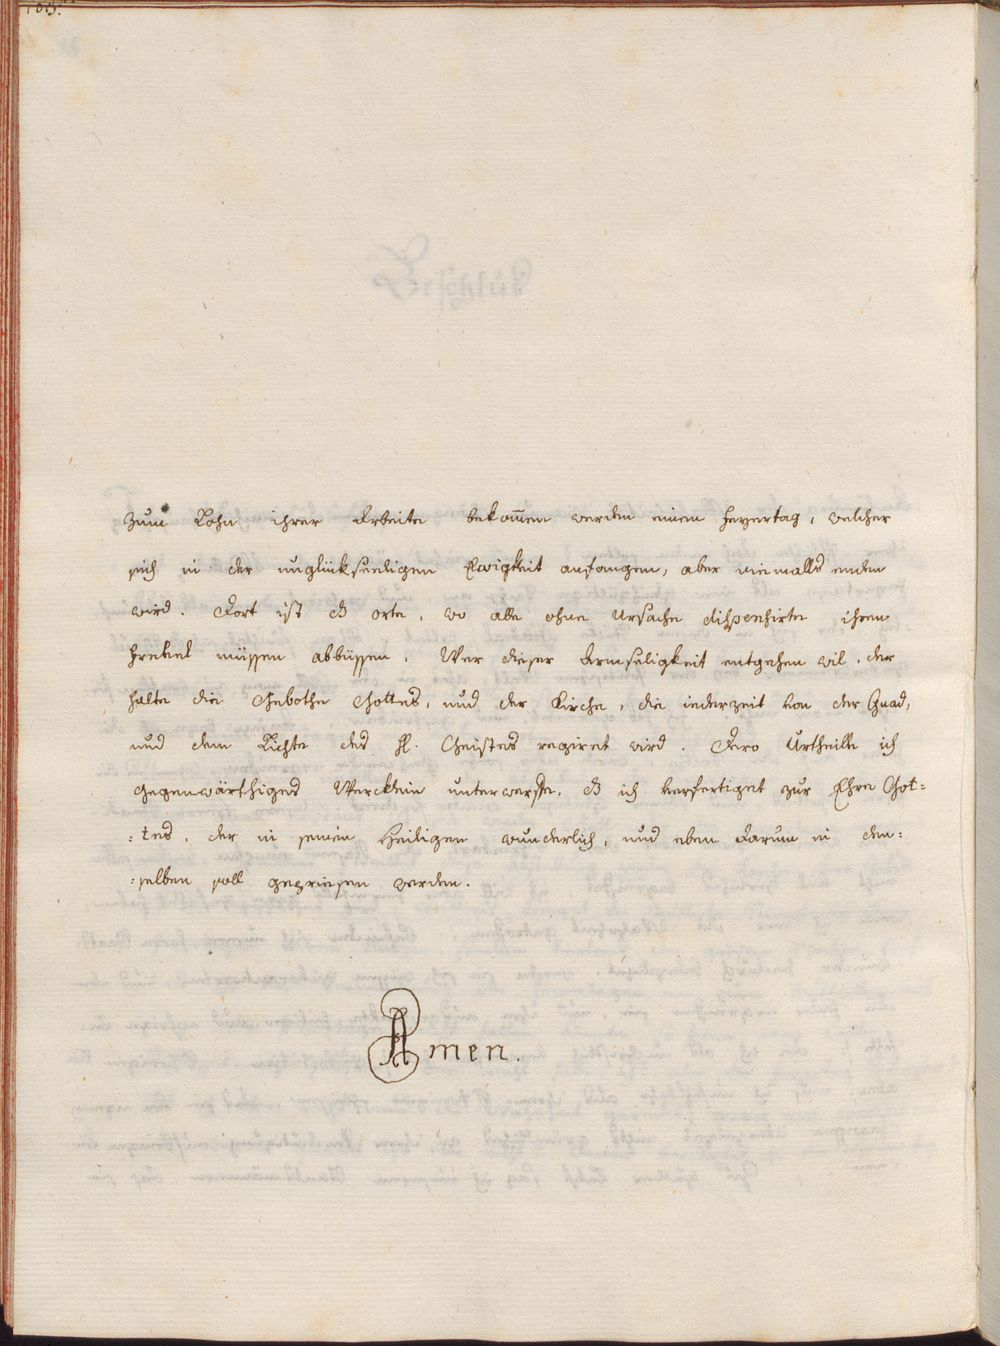 zum Lohn ihrer Arbeite bekom̅en werden einen Feyertag, welcher
sich in der unglückseeligen Ewigkeit anfangen, aber niemalls enden
wird. Dort ist das orte, wo alle ohne Ursache dihspensirte ihren
Frevel müssen abbüssen. Wer dieser Armseligkeit entgehen wil, der
halte die Gebothe Gottes, und der Kirche, die iederzeit von der Gnad,
und dem Lichte des Hl. Geistes regiret wird. Dero Urtheille ich
gegenwärthiges Wercklein unterwerffe, das ich verfertiget zur Ehre Got=
:tes, der in seinen Heiligen wunderlich, und eben darum in den=
:selben soll gepriesen werden.
Amen.